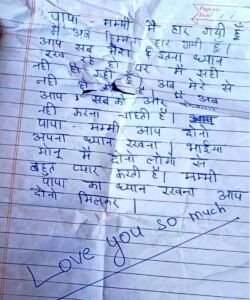 पापा मम्मी मैं हार गयी हूँ
मैं अब हिम्मत हार गयी हूँ।
आप सब मेरा इतना ध्यान
रख रहे हो पर मैं सही
नही हो अब मेरे से
आप सबको और
नही करना चाहती हूँ।
पापा - मम्मी आप दोनो
अपना ध्यान रखना। भाईया
मोनू मैं दोनो लोगो से
बहुत प्यार करती हूँ। मम्मी
पापा का ध्यान रखना आप
दोनो मिलकर।
Love you so much